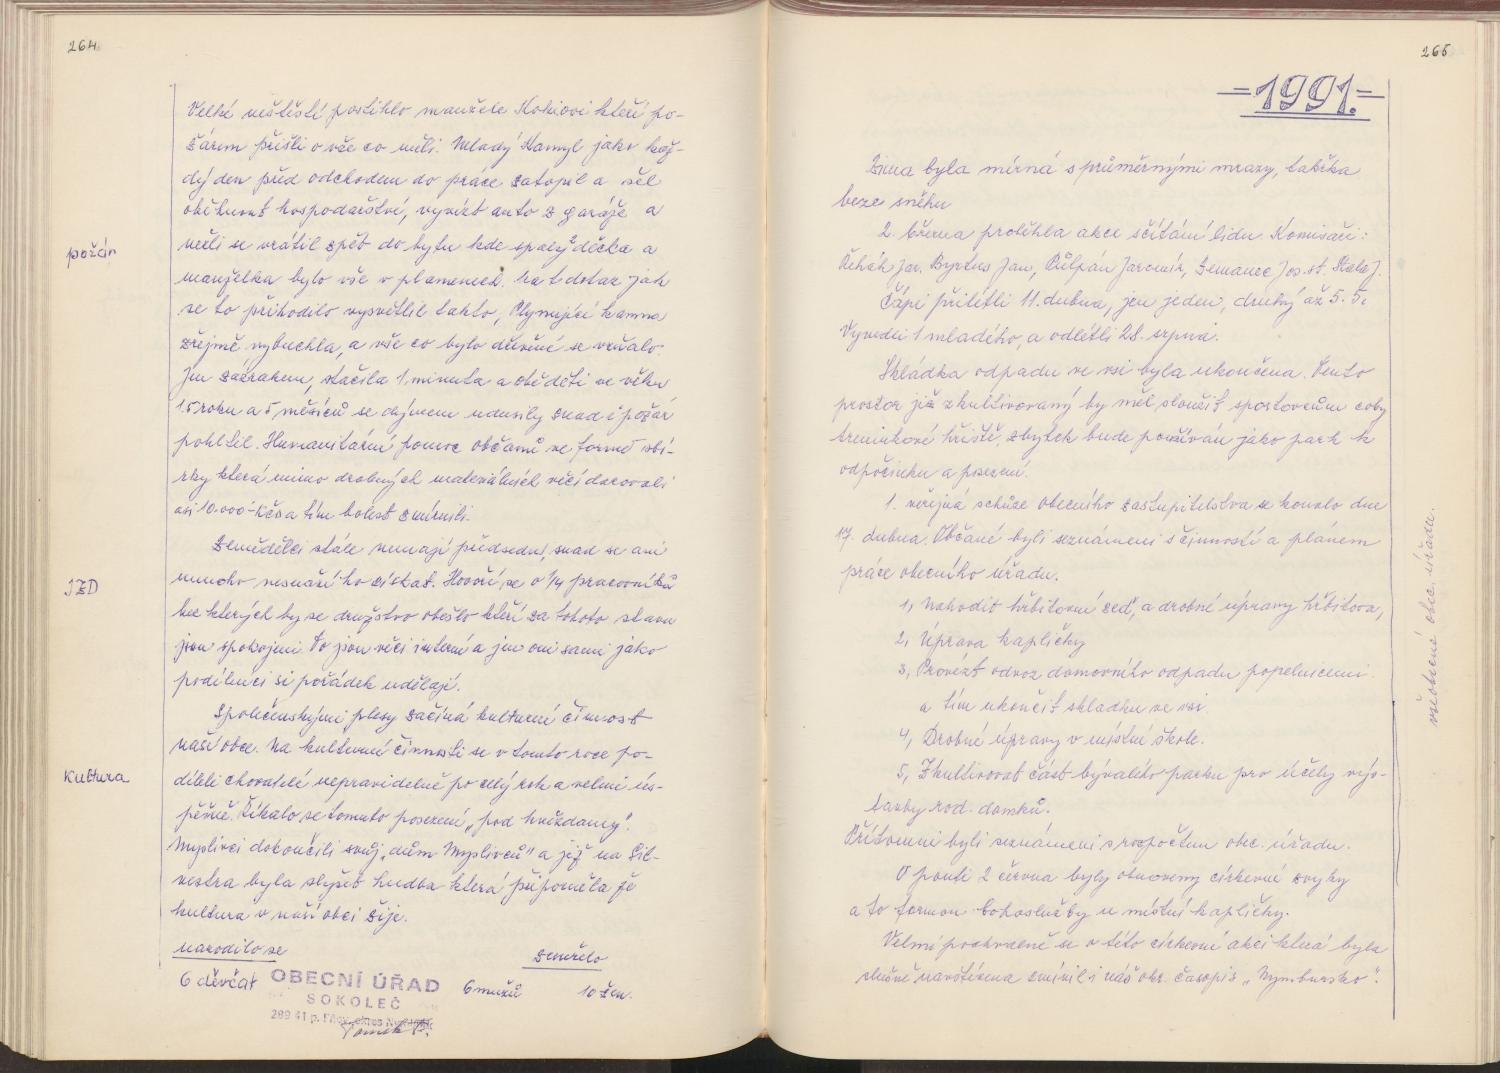 264
Velké neštěstí postihlo manžele Kokiovi kteří po-
žárem přišli o vše co měli. Mladý Kamyl jako kaž-
dý den před odchodem do práce zatopil a šel
oběhnout hospodářství, vyvézt auto z garáže a
nežli se vrátil zpět do bytu kde spaly 2 děcka a
manželka bylo vše v plamenech. Na dotaz jak
se to přihodilo vysvětlil takto, Plynující kamna
zřejmě vybuchla, a vše co bylo dřevěné se vzňalo.
Jen zázrakem, stačila 1 minuta a obě děti ve věku
1.5 roku a 5 měsíců se dýmem udusily snad i požár
pohltil. Humanitární pomoc občanů ve formě sbí-
rky která mimo drobných materiálních věcí darovali
asi 10.000-Kčs a tím bolest zmírnili.
požár
Zemědělci stále nemají předsedu, snad se ani
mnoho nesnaží ho získat. Hovoří se o 1/4 pracovníků
bez kterých by se družstvo obešlo kteří za tohoto stavu
jsou spokojeni. To jsou věci interní a jen oni sami jako
podílníci si pořádek udělají.
JZD
Společenskými plesy začíná kulturní činnost
naší obce. Na kulturní činnosti se v tomto roce po-
díleli chovatelé nepravidelně po celý rok a velmi ús-
pěšně. Říkalo se tomuto posezení "pod hvězdamy".
Myslivci dokončili svůj "dům Myslivců" a již na Sil-
vestra byla slyšet hudba která připoměla že
kultura v naší obci žije.
Kultura
narodilo se
zemřelo
6 děvčat
6 mužů 10 žen.
OBECNÍ ÚŘAD
SOKOLEČ
289 41 p. Pňov, okres Nymburk
265
=1991.=
Zima byla mírná s průměrnými mrazy, takřka
beze sněhu
2. března proběhla akce sčítání lidu. Komisaři:
Řehák Jar. Byrtus Jan, Půlpán Jaromír, Zemanec Jos. st.
Čápi přilétli 11. dubna, jen jeden, druhý až 5. 5.
Vyvedli 1 mladého, a odlétli 28. srpna.
Skládka odpadu ve vsi byla ukončena. Tento
prostor již zkultivovaný by měl sloužit sportovcům coby
treninkové hřiště, zbytek bude používán jako park k
odpočinku a posezení.
1. veřejná schůze obecního zastupitelstva se konalo dne
17. dubna. Občané byli seznámeni s činností a plánem
práce obecního úřadu.
1, Nahodit hřbitovní zeď, a drobné úpravy hřbitova,
2, Úprava kapličky
3, Provézt odvoz domovního odpadu popelnicemi
a tím ukončit skladku ve vsi.
4, Drobné úpravy v místní škole.
5, Zkultivovat část bývalého parku pro účely výs-
tavby rod. domků.
Přítomni byli seznámeni s rozpočtem obec. úřadu.
O pouti 2 června byly obnoveny církevní zvyky
a to formou bohoslužby u místní kapličky.
Velmi pochvalně se o této církevní akci která byla
slušně navštívena zmínil i náš okr. časopis "Nymbursko".
všeobecně obec. úřadu.